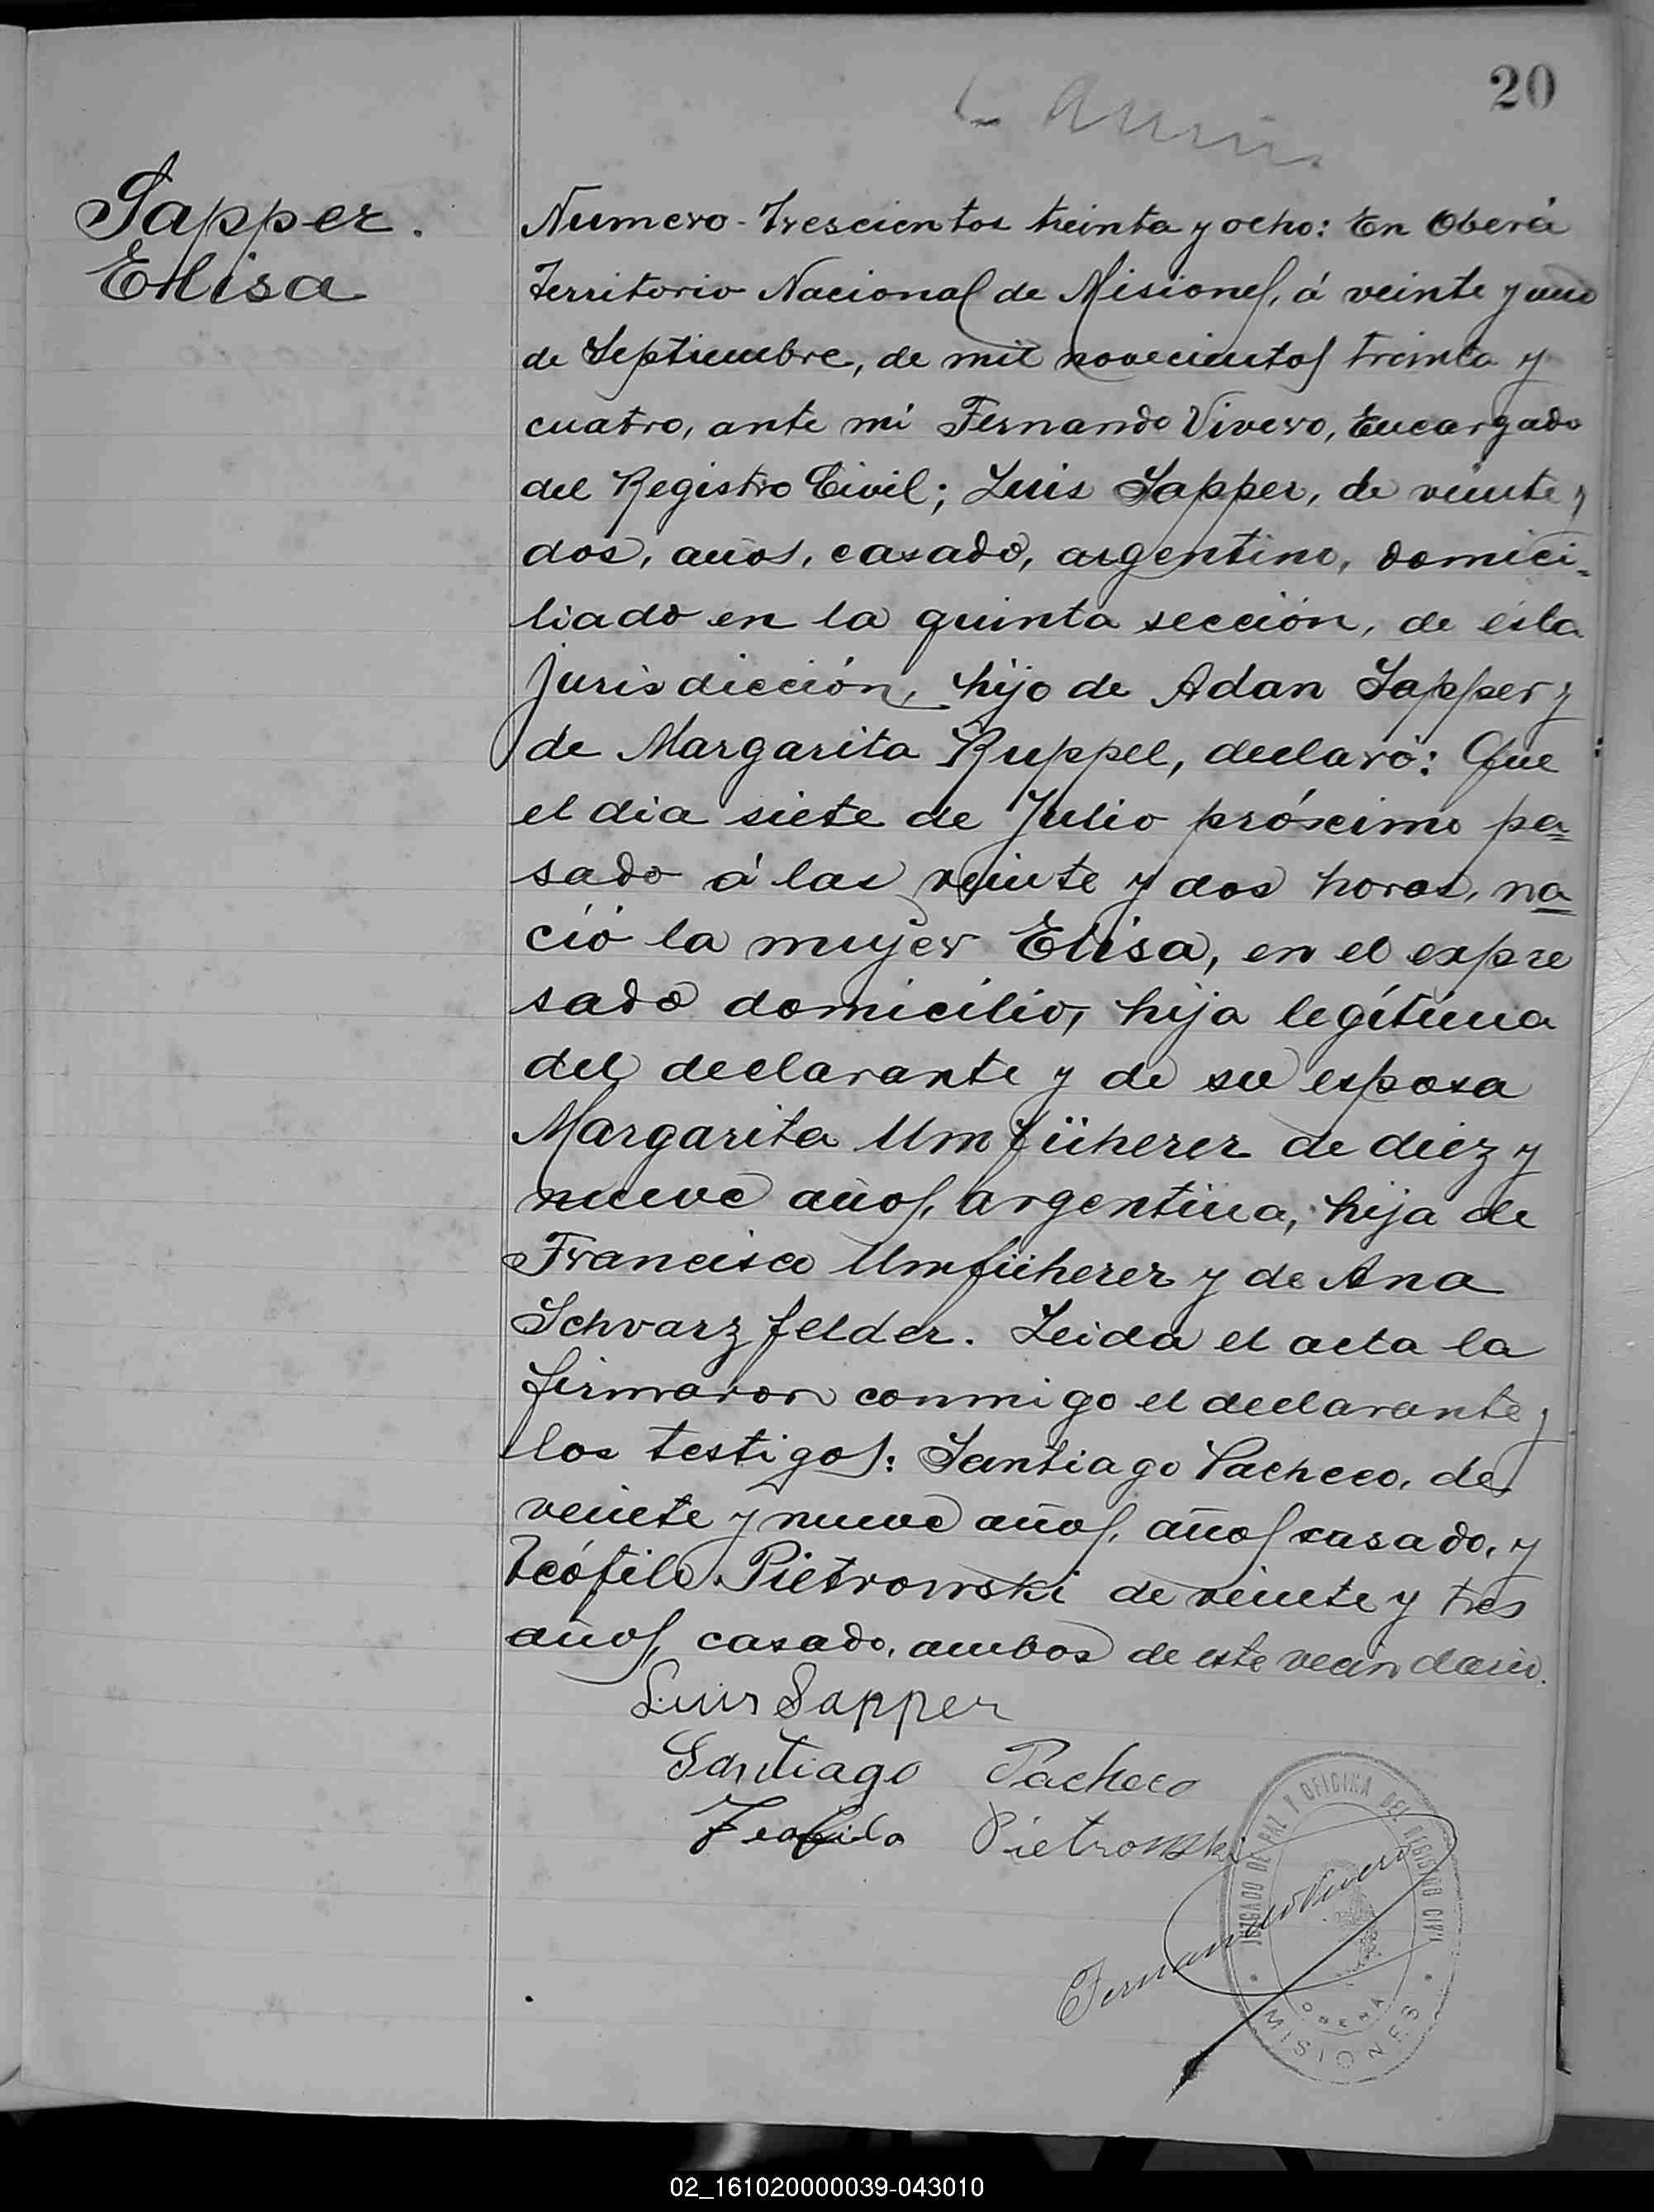 20
Sapper.
Elisa
Numero-Trescientos treinta y ocho: En Oberá
Territorio Nacional de Misiones, á veinte y uno
de Septiembre, de mil novecientos treinta y
cuatro, ante mi Fernando Vivero, Encargado
del Registro Civil; Luis Sapper, de veinte y
dos, años, casado, argentino, domici-
liado en la quinta sección, de ésta
jurisdicción, hijo de Adan Sapper y
de Margarita Ruppel, declaró: Que
el dia siete de Julio próximo pa=
sado á las veinte y dos horas, na
ció la mujer Elisa, en el expre
sado domicilio, hija legítima
del declarante y de su esposa
Margarita Umfüherer de diez y
nueve años, argentina, hija de
Francisco Umfüherer y de Ana
Schvarzfelder. Leida el acta la
firmaron conmigo el declarante y
los testigos: Santiago Pacheco, de
veinte y nueve años, años casado, y
Teófilo Pietrowski de veinte y tres
años, casado, ambos de este vecindario.
Luis Sapper
Santiago Pacheco
Teofilo Pietrowski
Fernando Vivero
JUZGADO DE PAZ Y OFICINA DEL REGISTRO CIVIL
OBERA
MISIONES
02_161020000039-043010